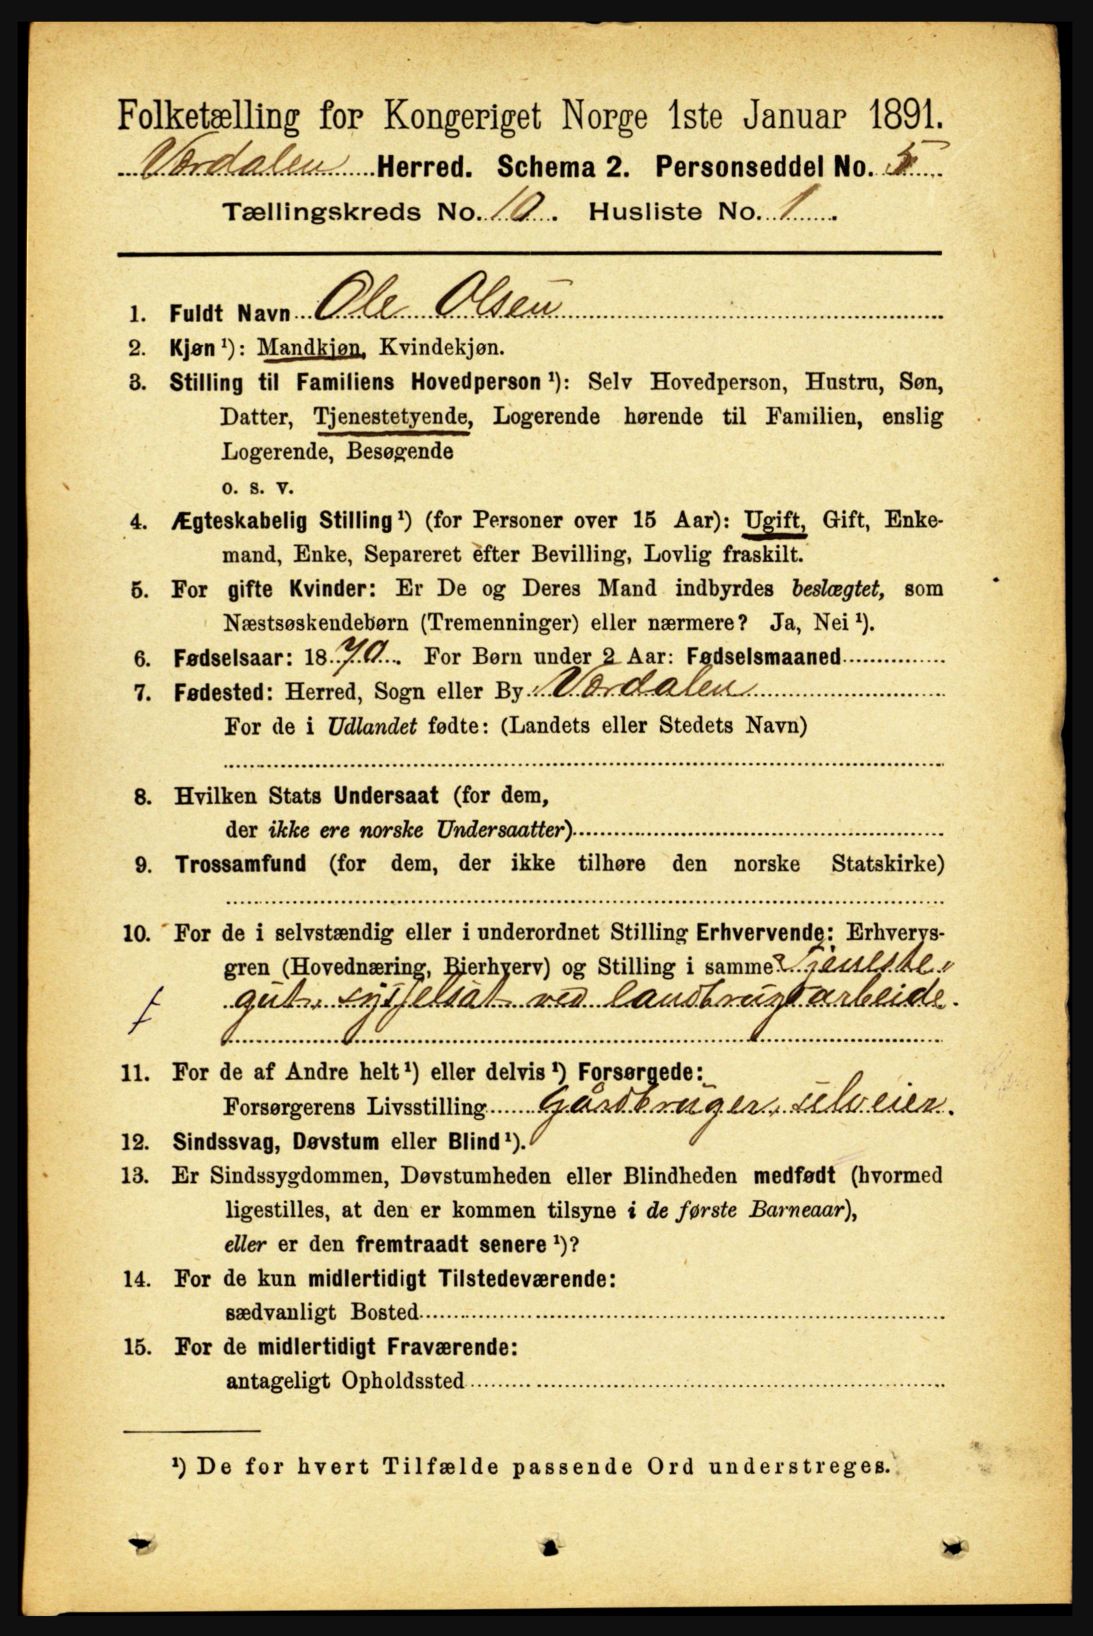 Folketælling for Kongeriget Norge 1ste Januar 1891.
Værdalen Herred. Schema 2. Personseddel No. 5
Tællingskreds No. 10. Husliste No. 1.
1. Fuldt Navn Ole Olsen
2. Kjøn ¹): Mandkjøn, Kvindekjøn.
3. Stilling til Familiens Hovedperson ¹): Selv Hovedperson, Hustru, Søn,
Datter, Tjenestetyende, Logerende hørende til Familien, enslig
Logerende, Besøgende
o. s. v.
4. Ægteskabelig Stilling ¹) (for Personer over 15 Aar): Ugift, Gift, Enke-
mand, Enke, Separeret efter Bevilling, Lovlig fraskilt.
5. For gifte Kvinder: Er De og Deres Mand indbyrdes beslægtet, som
Næstsøskendebørn (Tremenninger) eller nærmere? Ja, Nei ¹).
6. Fødselsaar: 1870. For Børn under 2 Aar: Fødselsmaaned
7. Fødested: Herred, Sogn eller By Værdalen
For de i Udlandet fødte: (Landets eller Stedets Navn)
8. Hvilken Stats Undersaat (for dem,
der ikke ere norske Undersaatter)
9. Trossamfund (for dem, der ikke tilhøre den norske Statskirke)
10. For de i selvstændig eller i underordnet Stilling Erhvervende: Erhvervs-
gren (Hovednæring, Bierhverv) og Stilling i samme? Tjeneste-
gut, sysselsat ved landbrugsarbeide.
11. For de af Andre helt ¹) eller delvis ¹) Forsørgede:
Forsørgerens Livsstilling Gårdbruger, selveier.
12. Sindssvag, Døvstum eller Blind ¹).
13. Er Sindssygdommen, Døvstumheden eller Blindheden medfødt (hvormed
ligestilles, at den er kommen tilsyne i de første Barneaar),
eller er den fremtraadt senere ¹)?
14. For de kun midlertidigt Tilstedeværende:
sædvanligt Bosted
15. For de midlertidigt Fraværende:
antageligt Opholdssted
¹) De for hvert Tilfælde passende Ord understreges.